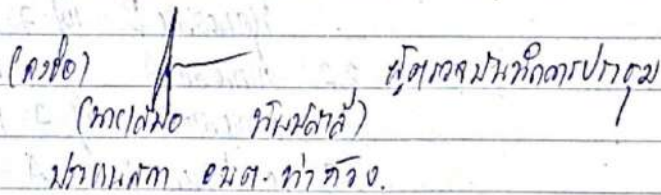 (ลงชื่อ) ผู้ตรวจบันทึกการประชุม
(นายเสมอ)
ประธานสภา อบต. ท่าช้าง.